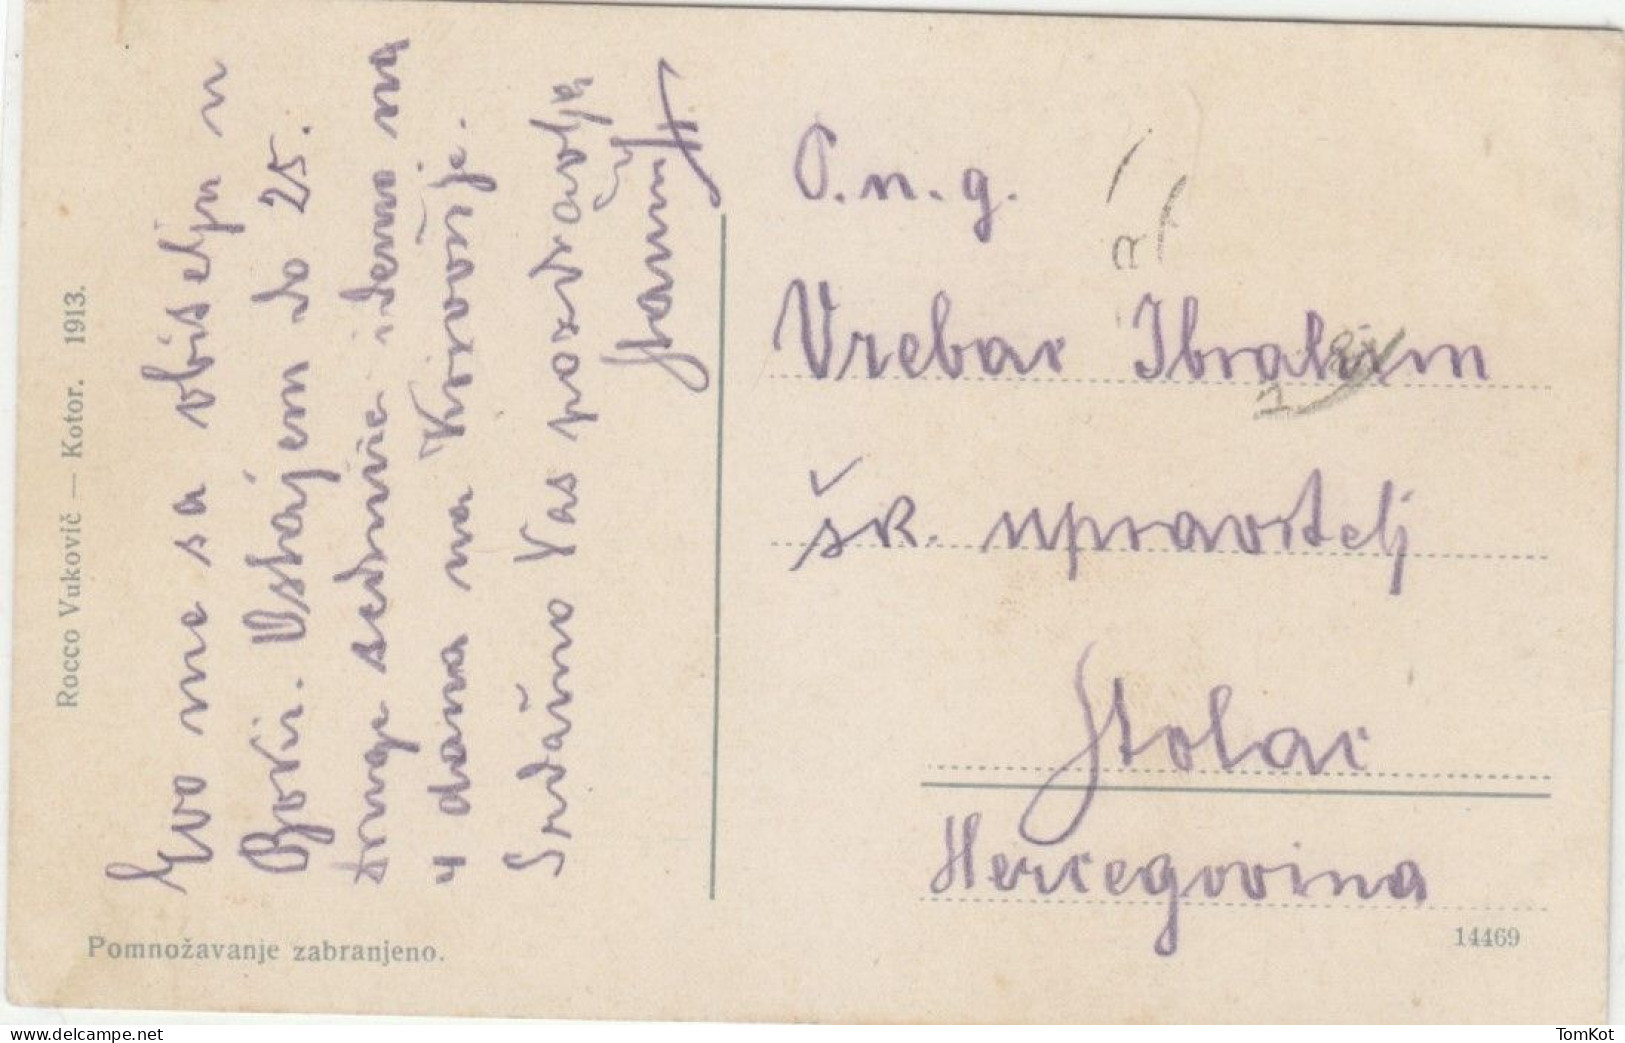 Rocco Vukovič — Kotor. 1913.
Evo me sa obitelju u
Boki. Ostajem do 25.
druge sedmice idemo na
4 dana na Krivošije.
Srdačno Vas pozdravlja
P. n. g.
Vrebac Ibrahim
šk. upravitelj
Stolac
Hercegovina
Pomnožavanje zabranjeno.
14469
www.delcampe.net
TomKot